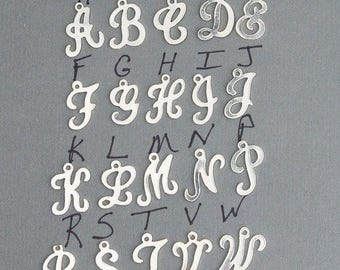 A B C D E
F G H I J
F G H I J
K L M N P
K L M N P
R S T V W
R S T V W